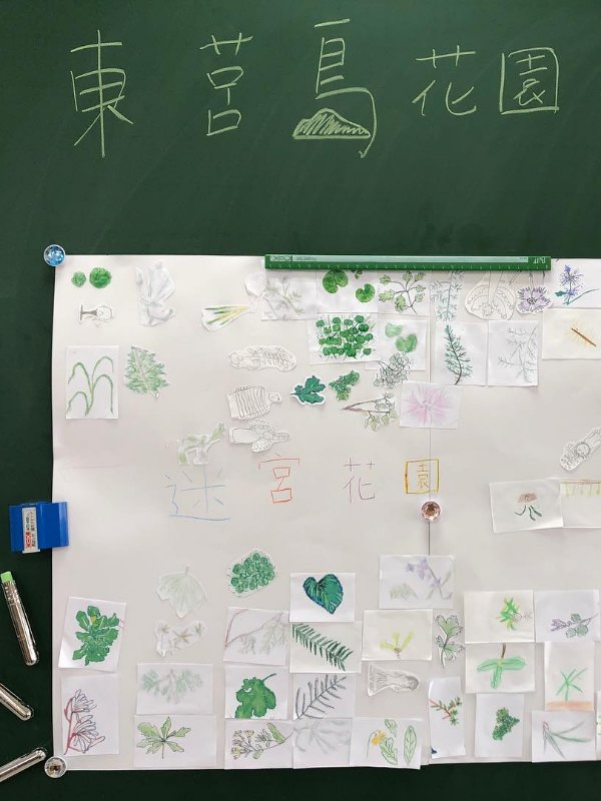 東莒島花園
迷宮花園